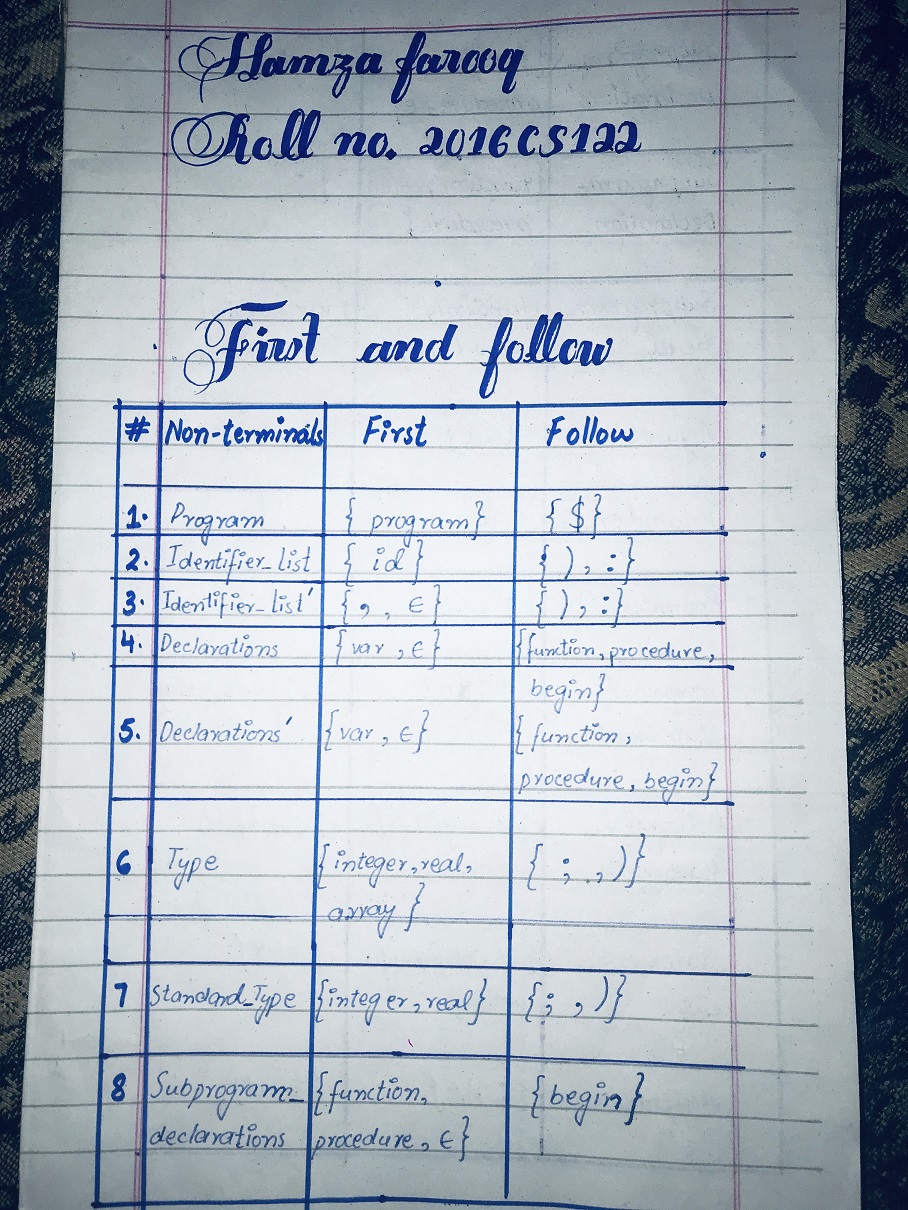 Hamza farooq
Roll no. 2016CS122
First and follow
# Non-terminals First Follow
1. Program { program} { $}
2. Identifier_list { id } { ), :}
3. Identifier_list' {, , ∈ } { ), :}
4. Declarations {var , ∈ } {function, procedure,
begin}
5. Declarations' {var , ∈ } { function,
procedure, begin}
6 Type {integer, real, { ; , )}
array }
7 Standard_Type {integer, real} {; , )}
8 Subprogram_ {function, {begin}
declarations procedure, ∈ }